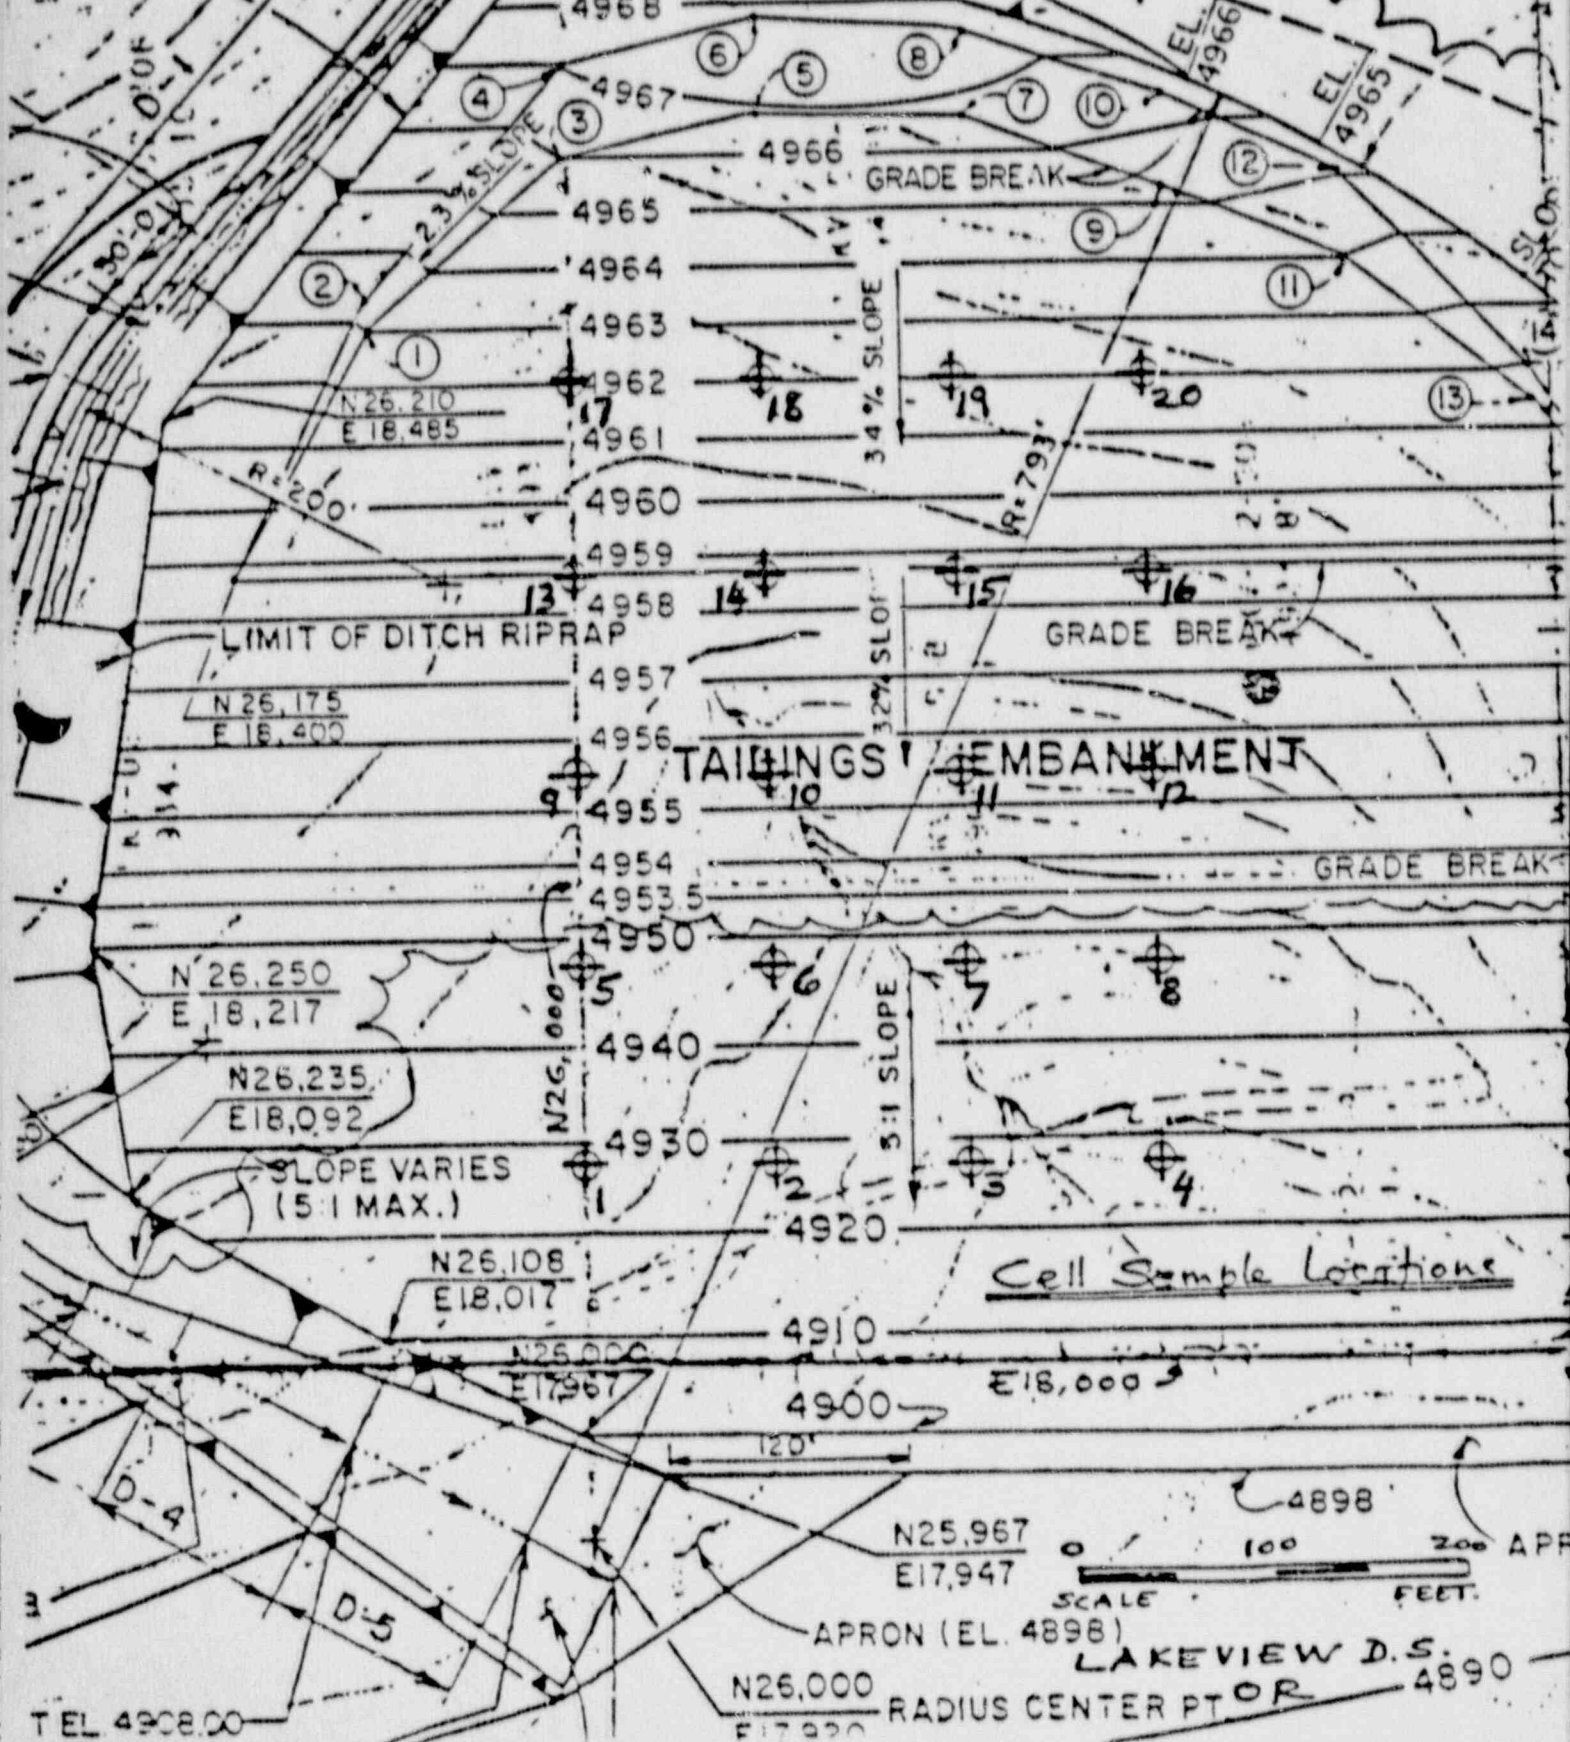 4968
EL. 4966
EL. 4965
6
8
5
4
4967
7
10
3
4966
12
GRADE BREAK
2.3% SLOPE
4965
9
4964
2
11
4963
34% SLOPE
1
4962
17
18
19
20
13
N26,210
E 18,485
4961
R=200'
4960
R=793'
4959
13
4958
14
15
16
LIMIT OF DITCH RIPRAP
GRADE BREAK
4957
N 26,175
E 18,400
4956
TAILINGS EMBANKMENT
9
10
11
12
4955
4954
GRADE BREAK
4953.5
4950
N 26,250
E 18,217
5
6
7
8
N26,000
4940
3:1 SLOPE
N26,235
E18,092
4930
SLOPE VARIES
(5:1 MAX.)
1
2
3
4
4920
N26,108
E18,017
Cell Sample Locations
4910
E17,967
E18,000
4900
120'
D-4
4898
N25,967
E17,947
0 100 200
SCALE FEET.
D-5
APRON (EL. 4898)
LAKEVIEW D.S.
OR
N26,000
RADIUS CENTER PT
4890
T EL. 4908.00